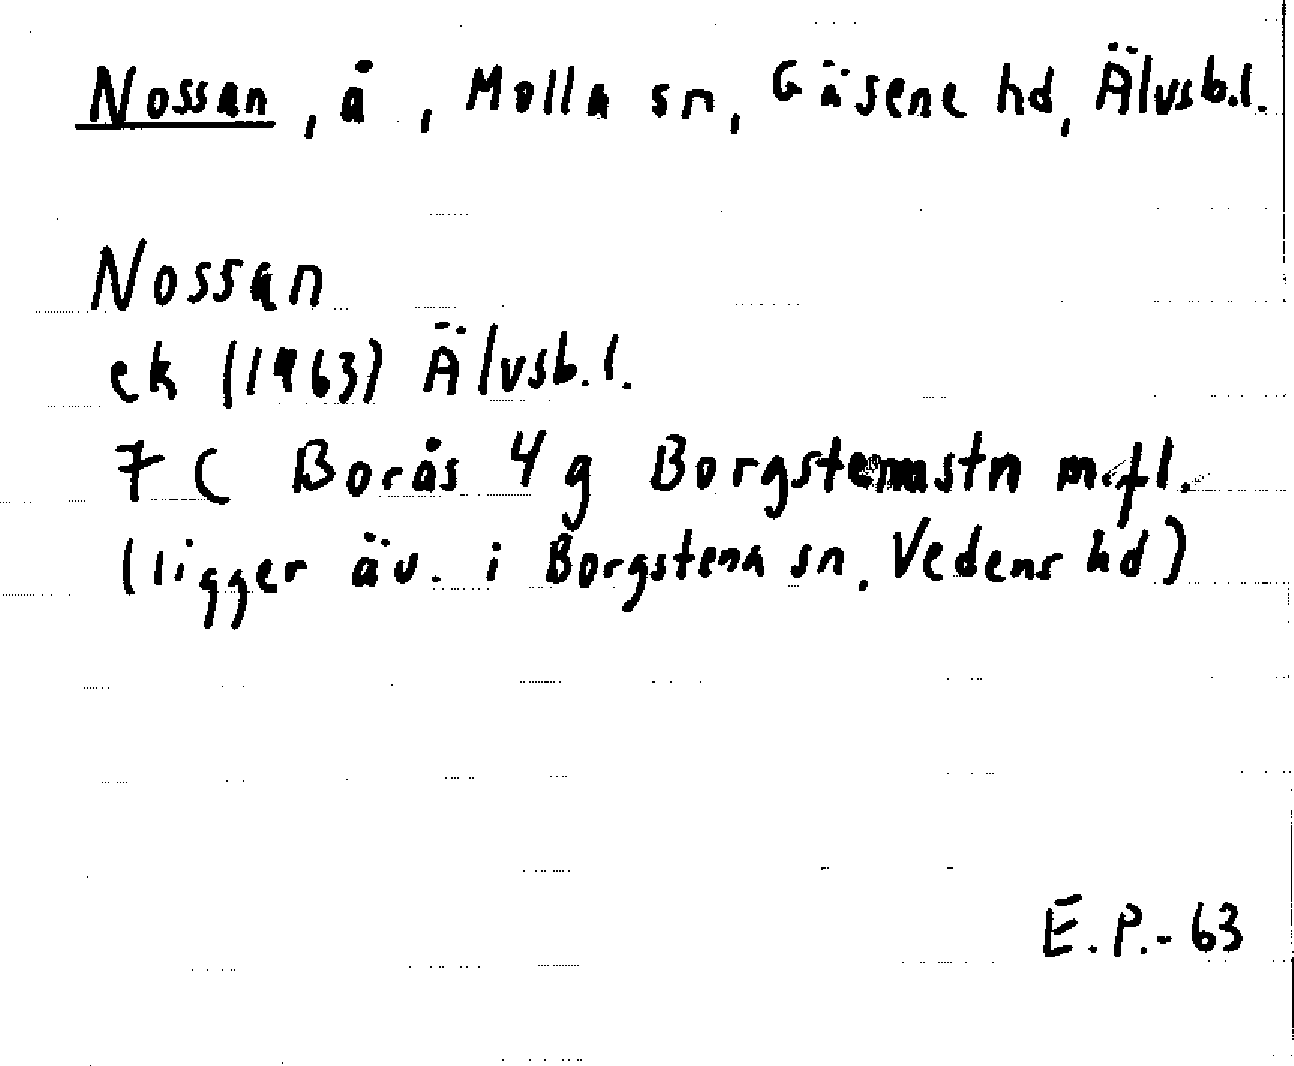 Nossan, å, Molla sn, Gäsene hd, Älvsb.l.
Nossan
ek (1963) Älvsb.l.
7 C Borås 4 g m.fl.
(ligger äv. i Borgstena sn, Vedens hd)
E.P.-63